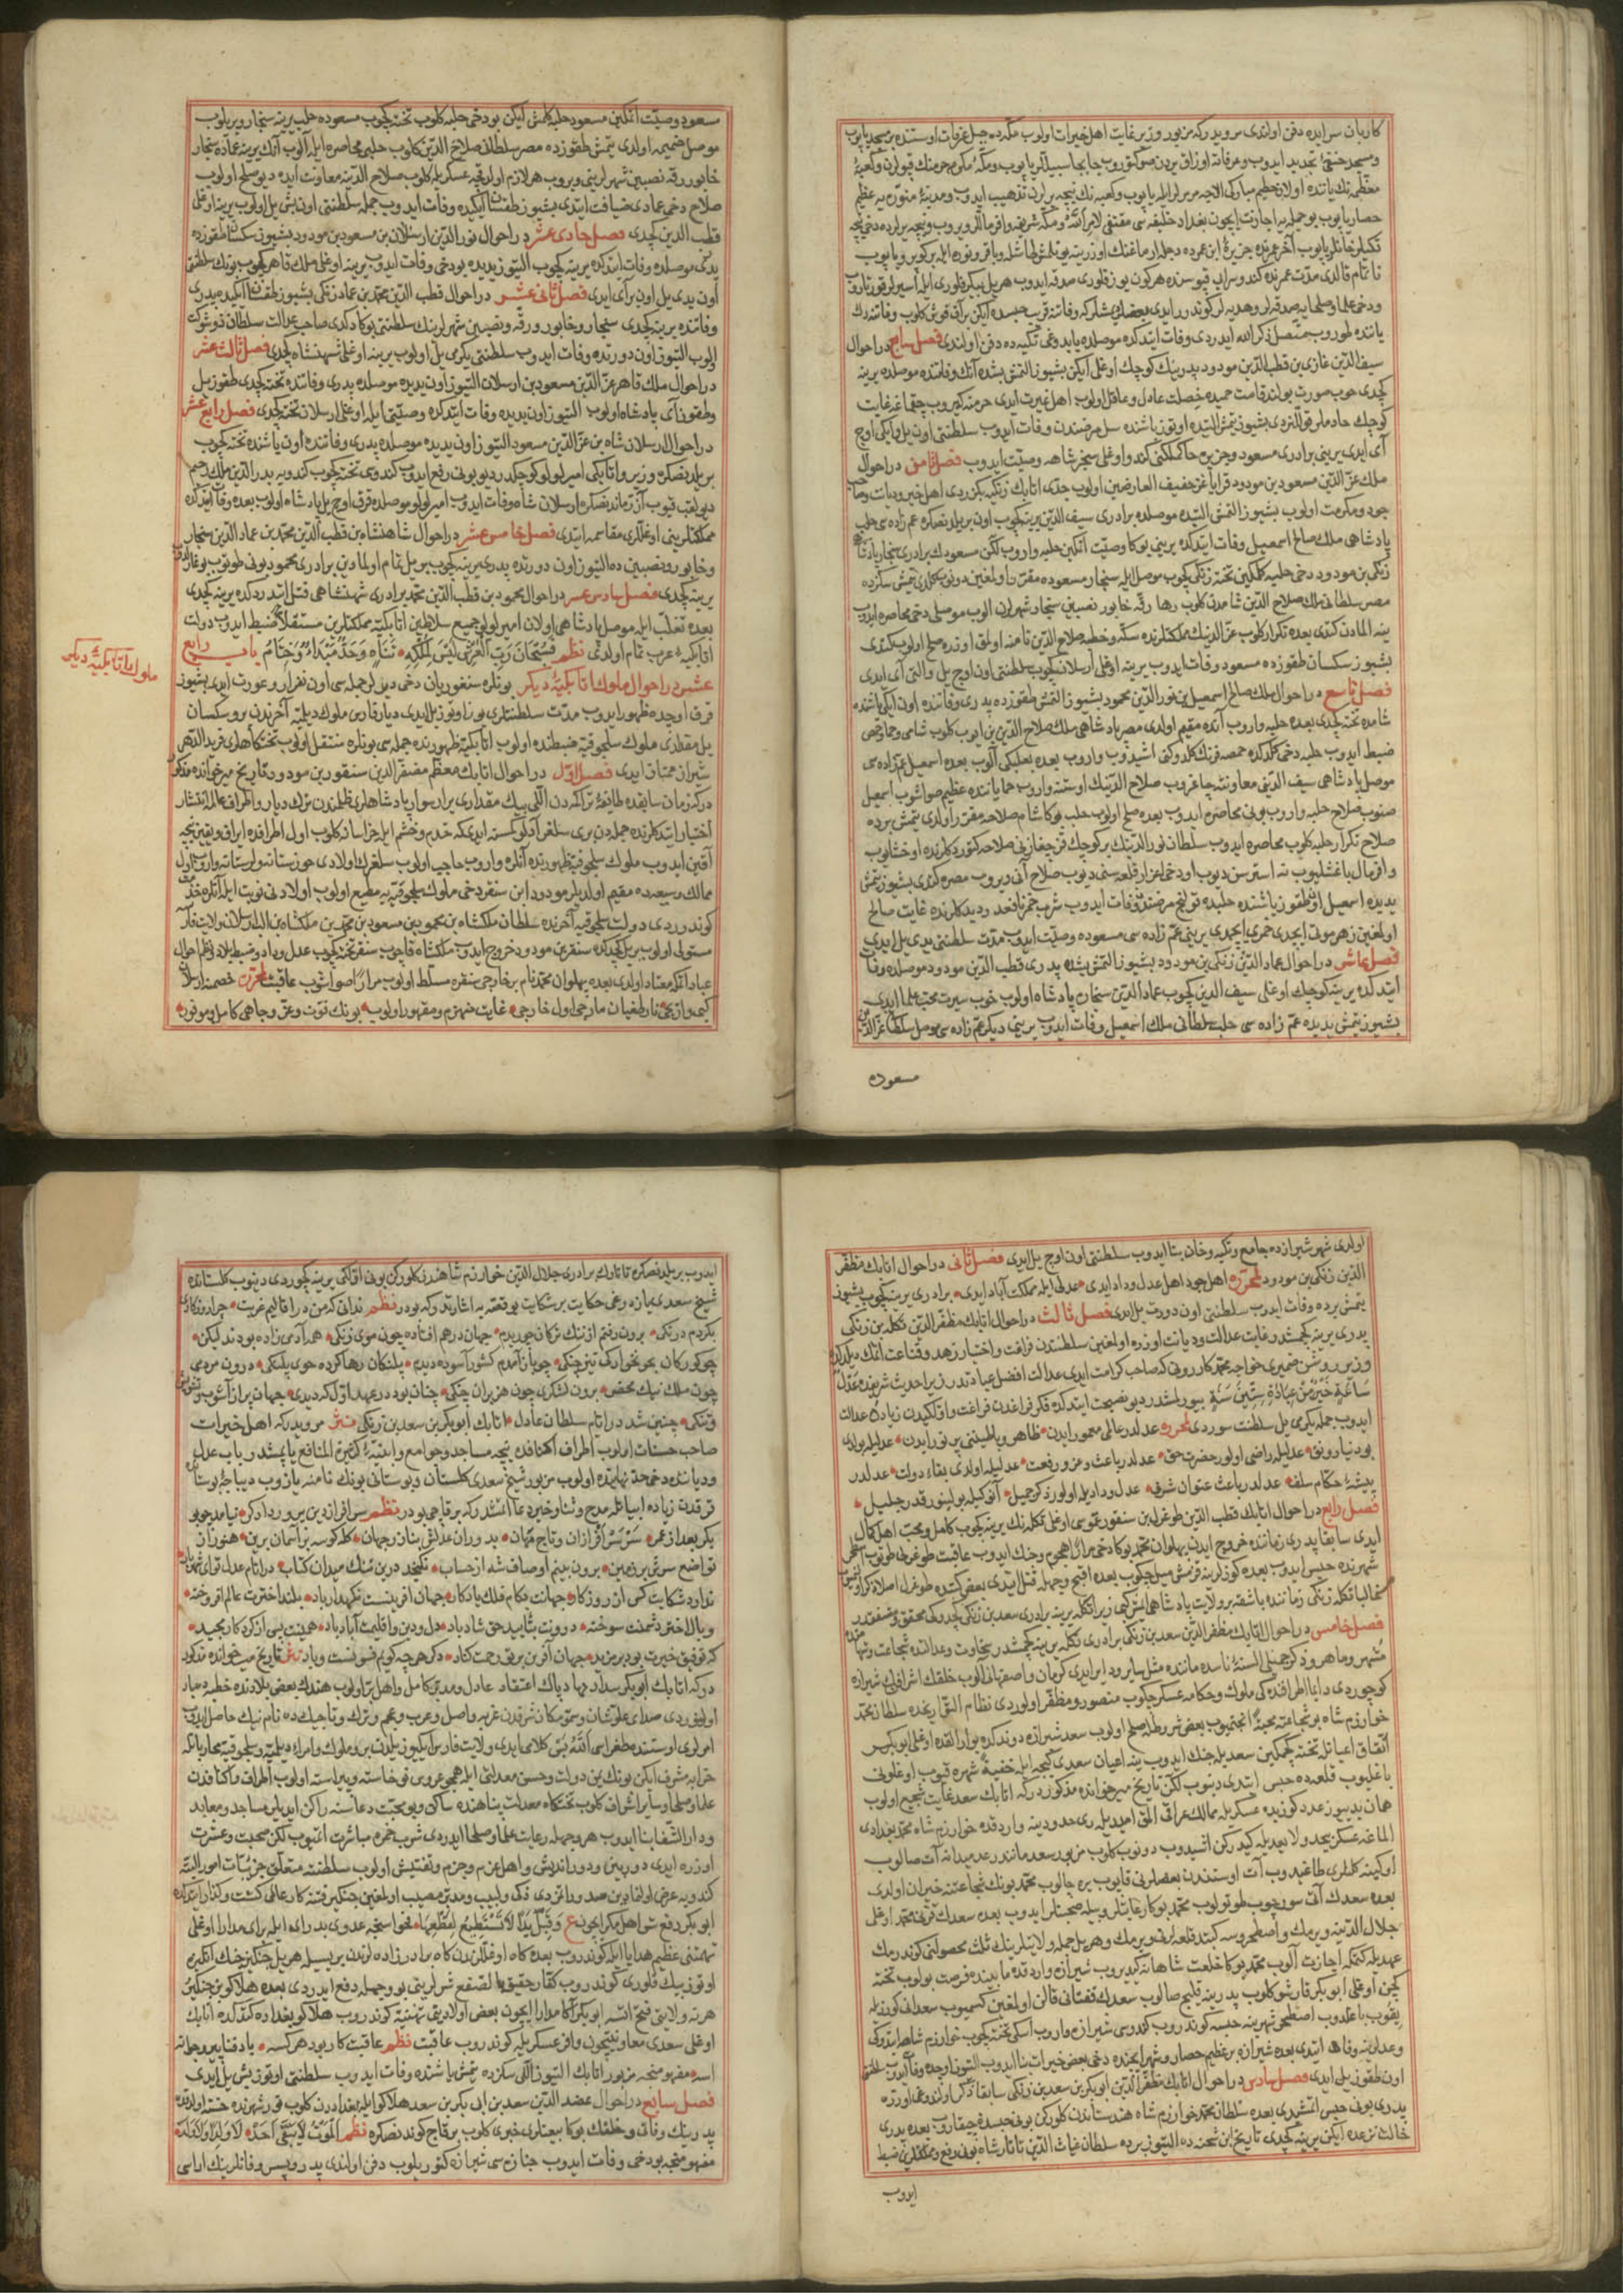 كاربان سرايده دفن اولندى مرويدركه مزبور وزير غايت اهل خيرات اولوب مكه ده جبل عرفات اوستنده بر مسجد يابوب
ومسجد حنفى تجديد ايدوب وعرفاته اوزاق يردن صو كتوروب جابجا سبيللر يابوب ومكۀ مكرمه حرمنك قپولرن وكعبۀ
معظمه نك ياننده اولان حطيم مباركى الاجه مرمرلرايله يابوب وكعبه نك نيجه يرلرن تذهيب ايدوب ومدينۀ منوره يه عظيم
حصار يابوب بو جمله يه اجازت ايچون بغداد خليفه سى مقتفى لامر الله ومكه شريفنه وافر ماللر ويروب ونيجه يرلرده دخى نيجه
تكيلر خانلر يابوب آخر عمرنده جزيرۀ ابن عمرده دجله ارماغنك اوزرينه يونلمش طاشله وباقر وتوج ايله بر كوپرو يابوب
ناتمام قالدى مدت عمرنده كندو سرايى قپوسنده هركون يوز فلورى صدقه ايدوب هر ييل بيك فلورى ايله اسيرلر قورتاروب
ودخى علما وصلحايه صدقه لر وهديه لر كوندورر ايدى
ياننده طوروب متصل ذكر الله ايدردى وفات ايتدكده موصلده يابدوغى تكيه ده دفن اولندى فصل سابع در احوال
سيف الدين غازى بن قطب الدين مودود پدرينك كوچك اوغلى ايكن بشيوز التمش بشده آنك وفاتنده موصلده يرينه
كچدى خوب صورت بولند قامت حميده خصلت عادل وعاقل اولوب اهل غيرت ايدى حرمنه كيروب چقماغه غايت
كوچك خادملر قوللنردى بشيوز يتمش التيده اوتوز ياشنده سل مرضندن وفات ايدوب سلطنتى اون ييل وايكى اوچ
آى ايدى يرينى برادرى مسعود وجزيره حاكملكنى كندو اوغلى سنجر شاهه وصيت ايدوب فصل ثامن در احوال
ملك عز الدين مسعود بن مودود قرايغز خفيف العارضين اولوب جدى اتابك زنكى يه بكزردى اهل خير وديانت وصاحب
جود ومكرمت اولوب بشيوز التمش التيده موصلده برادرى سيف الدين يرينه كچوب اون بر ييلدنصكره عم زاده سى حلب
پادشاهى ملك صالح اسمعيل وفات ايتدكده يرينى بوكا وصيت ايتدكين حلبه واروب لكن مسعودك برادرى سنجار پادشاهى
زنكى بن مودود دخى حلبه كلمكين تخته زنكى كچوب موصل ايله سنجار مسعوده مقرر اولمغين دونوب كلدى يتمش سكزده
مصر سلطانى ملك صلاح الدين شامدن كلوب رها رقه خابور نصيبين سنجار شهرلرن الوب موصلى دخى محاصره ايدوب
ينه المادن كتدى بعده تكرار كلوب عز الدينك مملكتلرنده سكه وخطبه صلاح الدين نامنه اولمق اوزره صلح اولوب كتدى
بشيوز سكسان طقوزده مسعود وفات ايدوب يرينه اوغلى ارسلان كچوب سلطنتى اون اوچ ييل والتى آى ايدى
فصل تاسع در احوال ملك صالح اسمعيل بن نور الدين محمود بشيوز التمش طقوزده پدرى وفاتنده اون ايكى ياشنده
شامده تخته كچدى بعده حلبه واروب آنده مقيم اولدى مصر پادشاهى ملك صلاح الدين بن ايوب كلوب شامى وحماوحمصى
ضبط ايدوب حلبه دخى كلدكده حمصه فرنك كلدوكنى اشيدوب واروب بعده بعلبكى آلوب بعده اسمعيل عم زاده سى
موصل پادشاهى سيف الدينى معاونته چاغروب صلاح الدينك اوستنه واروب حما ياننده عظيم صواشوب اسمعيل
صنوب صلاح حلبه واروب بونى محاصره ايدوب بعده صلح اولوب حلب بوكا شام صلاحه مقرر اولدى يتمش برده
صلاح تكرار حلبه كلوب محاصره ايدوب سلطان نور الدينك بر كوچك قز جغازنى صلاحه كتوردكلرنده اوخشايوب
وافر مال باغشليوب نه استرسن ديوب اودخى اعزاز قلعه سنى ديوب صلاح آنى ويروب مصره كتدى بشيوز يتمش
يديده اسمعيل اون طقوز ياشنده حلبده قولنج مرضندن وفات ايدوب شرب خمر نافعدر ديدكلرنده غايت صالح
اولمغين زهر موتى ايچدى خمرى ايچمدى يرينى عم زاده سى مسعوده وصيت ايدوب مدت سلطنتى يدى ييل ايدى
فصل عاشر در احوال عماد الدين زنكى بن مودود بشيوز التمش بشده پدرى قطب الدين مودود موصلده وفات
ايتدكده يرينه كوچك اوغلى سيف الدين كچوب عماد الدين سنجارده پادشاه اولوب خوب سيرت محب علما ايدى
بشيوز يتمش يديده عم زاده سى حلب سلطانى ملك اسمعيل وفات ايدوب يرينى ديكر عم زاده سى موصل سلطانى عز الدين
مسعوده
مسعوده وصيت اتمكين مسعود حلبه كلمش ايكن بودخى حلبه كلوب تخته كچوب مسعوده حلب يرينه سنجار ويريلوب
موصل ضميمه اولدى يتمش طقوزده مصر سلطانى صلاح الدين كلوب حلبى محاصره ايله آلوب آنك يرينه عماده سنجار
خابور رقه نصيبين شهرلرينى ويروب هر لازم اولدقجه عسكريله كلوب صلاح الدينه معاونت ايده ديو صلح اولوب
صلاح دخى عمادى ضيافت ايتدى بشيوز طقسان ايكيده وفات ايدوب جمله سلطنتى اون بش ييل اولوب يرينه اوغلى
قطب الدين كچدى فصل حادى عشر در احوال نور الدين ارسلان بن مسعود بن مودود بشيوز سكسان طقوزده
پدرى موصلده وفات ايتدكده يرينه كچوب التيوز يديده بودخى وفات ايدوب يرينه اوغلى ملك قاهر كچوب بونك سلطنتى
اون يدى ييل اون بر آى ايدى فصل ثانى عشر در احوال قطب الدين محمد بن عماد زنكى بشيوز طقسان ايكيده پدرى
وفاتنده يرينه كچدى سنجار وخابور ورقه ونصيبين شهرلرينك سلطنتى بوكا دكدى صاحب عدالت سلطان ذو شوكت
اولوب التيوز اون دورتده وفات ايدوب سلطنتى يكرمى ييل اولوب يرينه اوغلى شهنشاه كچدى فصل ثالث عشر
در احوال ملك قاهر عز الدين مسعود بن ارسلان التيوز اون يديده موصلده پدرى وفاتنده تخته كچدى طقوز ييل
وطقوز آى پادشاه اولوب التيوز اون يديده وفات ايتدكده وصيتى ايله اوغلى ارسلان تخته كچدى فصل رابع عشر
در احوال ارسلان شاه بن عز الدين مسعود التيوز اون يديده موصلده پدرى وفاتنده اون ياشنده تخته كچوب
بر ييلدنصكره وزير واتابكى امير لولو كوچكدر ديو بونى رفع ايدوب كندوسى تخته كچوب كندويه بدر الدين ملك رحيم
ديو لقب قيوب آز زماندنصكره ارسلان شاه وفات ايدوب امير لولو موصلده قرق اوچ ييل پادشاه اولوب بعده وفات ايتدكده
مملكتلرينى اوغللرى مقاسمه ايتدى فصل خامس عشر در احوال شاهنشاه بن قطب الدين محمد بن عماد الدين سنجار
وخابور ونصيبين ده التيوز اون دورتده پدرى يرينه كچوب بر ييل تمام اولمادين برادرى محمود بونى طوتوب بوغازلايوب
يرينه كچدى فصل سادس عشر در احوال محمود بن قطب الدين محمد برادرى شهنشاهى قتل ايتدردكده يرينه كچدى
بعده تغلب ايله موصل پادشاهى اولان امير لولو جميع سلاطين اتابكيه مملكتلرين مستقلا ضبط ايدوب دولت
اتابكيۀ عرب تمام اولدى نظم فَسُبْحَانَ رَبِّ الْعَرْشِ لَيْسَ لِمُلْكِهِ تَنَاهٍ وَحَدٌّ مُبْتَدَاءٌ وَخِتَامُ باب رابع
عشر در احوال ملوك اتابكيۀ ديكر بونلره سنغوريان دخى ديرلر جمله سى اون نفر ار وعورت ايدى بشيوز
قرق اوچده ظهور ايدوب مدت سلطنتلرى يوز اوتوز ييل ايدى ديار فارس ملوك ديلميه آخرندن يوز سكسان
ييل مقدارى ملوك سلجوقيه ضبطنده اولوب اتابكيه ظهورنده جمله سى بونلره منتقل اولوب تختكاهلرى فريد الدهر
شيراز ممتاز ايدى فصل اول در احوال اتابك معظم مضفر الدين سنقور بن مودود تاريخ ميرخوانده مذكور
دركه زمان سابقده طايفۀ تراكمه دن اللى بيك مقدارى يرادر سوار پادشاهلرى ظلمندن ترك ديار واطراف عالمه انتشار
اختيار ايتدكلرنده جمله دن برى سلغر آدلو كمسنه ايدى كه خدم وحشم ايله خراسانه كلوب اول اطرافده ايراق ويقين نيجه
آقين ايدوب ملوك سلجوقيه ظهورنده آنلره واروب حاجب اولوب سلغرك اولادى خوزستانه ولرستانه واروب اول
ممالك وسيعه ده مقيم اولديلر مودود ابن سنقر دخى ملوك سلجوقيه يه مطيع اولوب اولادنى نوبت ايله آنلره خدمته
كوندرردى دولت سلجوقيه آخرنده سلطان ملكشاه بن محمود بن مسعود بن محمد بن ملكشاه بن الب ارسلان ولايت فارسه
مستولى اولوب بر ييل كچدكده سنقر بن مودود خروج ايدوب ملكشاه قاچوب سنقر تخته كچوب عدل وداد وضبط بلاد ونظم احوال
عباد آنكله معتاد اولدى بعده پهلوان محمد نام بر خارجى سنقره مسلط اولوب مرارا صواشوب عاقبت لمحرره خصمنه ارسلان
كبى واردى نار طغيان مارجى اول خارجى غايت منهزم ومقهور اولوب بونك قوت وعز وجاهى كامل وموفور
ملوك اتابكيۀ ديكر
اولدى شهر شيرازده جامع وتكيه وخان بنا ايدوب سلطنتى اون اوچ ييل ايدى فصل ثانى در احوال اتابك مظفر
الدين زنكى بن مودود لمحرره اهل جود اهل عدل وداد ايدى عدلى ايله مملكت آباد ايدى برادرى يرينه كچوب بشيوز
يتمش برده وفات ايدوب سلطنتى اون دورت ييل ايدى فصل ثالث در احوال اتابك مظفر الدين تكله بن زنكى
پدرى يرينه كچمشدر رعايت عدالت وديانت اوزره اولمغين سلطنتدن فراغت واختيار زهد وقناعت اتمك ديلدكده
وزير روشن ضميرى خواجه محمد كازرونى كه صاحب كرامت ايدى عدالت افضل عبادتدر زيرا حديث شريفده عَدْلُ
سَاعَةٍ خَيْرٌ مِنْ عِبَادَةِ سِتِّينَ سَنَةٍ بيورلمشدر ديو نصيحت ايتدكده فكر فراغدن فراغت واولكيدن زياده عدالت
ايدوب جمله يكرمى ييل سلطنت سوردى لمحرره عدلدر عالمى معمور ايدن ظاهر وباطنى پر نور ايدن عدليله بولدى
بو دنيا رونق عدليله راضى اولور حضرت حق عدلدر باعث وعز ورفعت عدليله اولدى بقاء دولت عدلدر
پيشۀ حكام سلف عدلدر باعث عنوان شرف عدل وداديله اولور ذكر جميل آنوكيله بولنور قدر جليل
فصل رابع در احوال اتابك قطب الدين طوغرل بن سنقور عموسى اوغلى تكله نك يرينه كچوب كامل ومحب اهل كمال
ايدى سابقا پدرى زماننده خروج ايدن پهلوان محمد بوكا دخى مرارا هجوم وجنك ايدوب عاقبت طوغرلى طوتوب اصطخر
شهرنده حبس ايدوب بعده كوزلرينه قزمش ميل چكوب بعده اقبح وجهله قتل ايدى
غالبا تكله زنكى زماننده باشقه بر ولايت پادشاهى ايمش كه زيرا تكله يرينه برادرى سعد بن زنكى كچدوكى محقق ومتفقدر
فصل خامس در احوال اتابك مظفر الدين سعد بن زنكى برادرى تكله يرينه كچمشدر سخاوت وعدالتده شجاعت وتهورده
مشهور وماهر وذكر جميلى السنۀ ناسده ماننده مثل ساير ودائر ايدى كرمان واصفهانى آلوب خلقنك اشرافن شيرازه
كوچوردى دايما اطرافده كى ملوك وحكامه عسكر چكوب منصور ومظفر اولوردى نظام التواريخده سلطان محمد
خوارزم شاه بو شجاعته محبۀ انجتميوب بعض شرطله صلح اولوب سعد شيرازه دوندكده اوغلى ابو بكر
اتفاق اعيانله تخته كچمكين سعديله جنك ايدوب ينه اعيان سعدى كيجه ايله خفيۀ شهره قيوب اوغلونى
باغليوب قلعه ده حبس ايتدى دينوب لكن تاريخ ميرخوانده مذكوردركه اتابك سعد غايت شجيع اولوب
همان يديوز عدد كوزيده عسكريله ممالك عراقى المق اميديله رى حدودينه واردقده خوارزم شاه محمد بغدادى
المغه عسكر بيحد ولا يعد ايله كيدركن اشيدوب دونوب كلوب مزبور سعد مانند رعد ميدانه آت صالوب
اوكينه كلنلرى طاغيدوب آت اوستندن بعضلرنى قاپوب يره چالوب محمد بونك شجاعتنه حيران اولدى
بعده سعدك آتى سورچوب طوتولوب محمد بوكا رعايتلر ايله صحبتلر ايدوب بعده سعدك قزنى محمد اوغلى
جلال الدينه ويرمك واصطخر وسه كبند قلعه لرنى ويرمك وهر ييل جمله ولايتلرينك ثلث محصولنى كوندرمك
عهديله كتمكه اجازت آلوب محمد بوكا خلعت شاهانه كيدروب شيرازه واردقده مابينده فرصت بولوب تخته
كچن اوغلى ابو بكر قارشو كلوب پدرينه قليج صالوب سعدك قفتانى قالن اولمغين كسميوب سعد آنى كورزله
يقوب باغلدوب اصطخر شهرينه حبسه كوندروب كندوسى شيرازه واروب اسكى تخته كچوب خوارزم شاهه ايتدوكى
وعدلرينه وفا ايتدى بعده شيرازه بر عظيم حصار وشهر ايچنده دخى بعض خيرات بنا ايدوب التيوز اوچده وفات ايدوب سلطنتى
اون طقوز ييل ايدى فصل سادس در احوال اتابك مظفر الدين ابو بكر بن سعد بن زنكى سابقا ذكر اولندوغى اوزره
پدرى بونى حبس ايتمشدى بعده سلطان محمد خوارزم شاه هندستاندن كلوركن بونى حبسدن چقاروب بعده پدرى
حالت نزعده ايكن يرينه كچدى تاريخ ابن شحنه ده التيوز يكرمى برده سلطان غياث الدين تاتار شاه بونى رفع ومملكتلرين ضبط
ايدوب
ايدوب بر ييلدنصكره تاتارك برادرى جلال الدين خوارزم شاه هندن كلوركن بونى اولكى يرينه كچوردى دينوب كلستانده
شيخ سعدى يازدوغى حكايت پر شكايت بو وقعه يه اشارتدركه بودر نظم ندانى كه من در اقاليم غربت چرا روزكارى
بكردم درنكى برون رفتم از ننك تركان چو ديدم جهان درهم افتاده چون موى زنكى همه آدمى زاده بودند ليكن
چو كركان بخونخوارى تيز چنكى چو باز آمدم كشور آسوده ديدم پلنكان رها كرده خوى پلنكى درون مردمى
چون ملك نيك محضر برون لشكرى چون هزبران جنكى چنان بود در عهد اول كه ديدى جهان پر از آشوب وتشويش
وتنكى چنين شد در ايام سلطان عادل اتابك ابو بكر بن سعد بن زنكى نثر مرويدركه اهل خيرات
صاحب حسنات اولوب اطراف اكنافده نيجه مساجد وجوامع وابنيۀ كثيرة المنافع ياپمشدر وباب عدل
وديانتده دخى حد نهايتده اولوب مزبور شيخ سعدى كلستان وبوستانى بونك نامنه يازوب ديباجۀ بوستانده
قرقدن زياده ابياتله مدح وثنا وخير دعا اتمشدركه بر قاچى بودر نظم سر افراز دين پرور دادكر نيامد چو بو
بكر بعد از عمر سَرِ سَرْ اَفْرازان وتاج مِهان بدوران عدلش بناز ى جهان كله كوشه بر آسمان برين هنوز از
تواضع سرش بر زمين برون بينم اوصاف شه از حساب نكنجد درين تنك ميدان كتاب در ايام عدل تو اى شهريار
ندارد شكايت كس از روزكار جهانت بكام وفلك يار باد جهان آفرينت نكهدار باد بلند اخترت عالم افروخته
وبال اختر دشمنت سوخته درونت بتاييد حق شاد باد دل ودين واقليمت آباد باد همينت بس از كردكار مجيد
كه توفيق خيرت بود بر مزيد جهان آفرين بر تو رحمت كناد دكر هرچه كويم فسونست وباد نثر تاريخ ميرخوانده مذكور
دركه اتابك ابو بكر سداد نهاد پاك اعتقاد عادل ومدبر كامل واهل بر اولوب هندك بعض بلادنده خطبۀ مراد
اوقوردى صداى علو شان وسمو مكان شرقدن غربه واصل وعرب وعجم وترك وتاجيك ده نام نيك حاصل ايدوب
امرلرى اوستنده طغراسى اَللّٰهُ بَسْ كلامى ايدى ولايت فارس ايكيوز ييلدن برو ملوك وامراء ديلميه وسلجوقيه محارباتيله
خرابه مشرف ايكن بونك يمن دولت وحسن معدلتى ايله همچو عروس نو خاسته وپيراسته اولوب اطراف واكنافدن
علما وصلحا وساير اشراف كلوب تختكاه معدلت پناهنده ساكن وبو محبت دعاسنه راكن ايديلر مساجد ومعابد
ودار الشفا بنا ايدوب هر وجهله رعايت علما وصلحا ايدردى شرب خمره مباشرت اتميوب لكن صحبت وعشرت
اوزره ايدى دوربين ودور انديش واهل عزم وحزم وتفتيش اولوب سلطنته متعلق جزئيات امور البته
كندويه عرض اولنمادين صدور اتمزدى ذكى ولبيب ومدبر مصيب اولمغين جنكيز فتنه كار عالمى كشت وكذار ايتدكده
ابو بكر دفع شر اهل مكر ايچون ع وَقَبِّلْ يَدًا لَا تَسْتَطِيعُ لِقَطْعِهَا فحواسنجه عدوى بد رايه ايله براى مدارا اوغلى
تهمتنى عظيم هدايا ايله كوندروب بعده كاه اوغللرندن كاه برادر زاده لرندن بريسيله هر ييل جنكيز خانه آنكيچون
اوتوز بيك فلورى كوندروب كفار حقيق بالصفع شرلرينى بو وجهله دفع ايدردى بعده هلاكو بن جنكيز
هر نه ولايتى فتح اتسه ابو بكر آكا مدارا ايچون بعض اولادينى تهنيته كوندروب هلاكو بغداده كلدكده اتابك
اوغلى سعدى معاونتيچون وافر عسكريله كوندروب عاقبت نظم عاقبت كار بود هر كسه يا دفنا پير وجوانه
اسه مفهومنجه مزبور اتابك التيوز اللى سكزده يتمش ياشنده وفات ايدوب سلطنتى اوتوز بش ييل ايدى
فصل سابع در احوال عضد الدين سعد بن ابى بكر بن سعد هلاكو ايله بغداددن كلوب قم شهرنده خسته اولدقده
پدرينك وفاتى وخلقك بوكا بيعتلرى خبرى كلوب بر قاچ كوندنصكره نظم اَلْمَوْتُ لَا يُبْقِى اَحَدًا لَا وَالِدًا وَلَا وَلَدًا
مفهومنجه بودخى وفات ايدوب جنازه سى شيرازه كتوريلوب دفن اولندى پدر وپسر وفاتلرينك اراسى